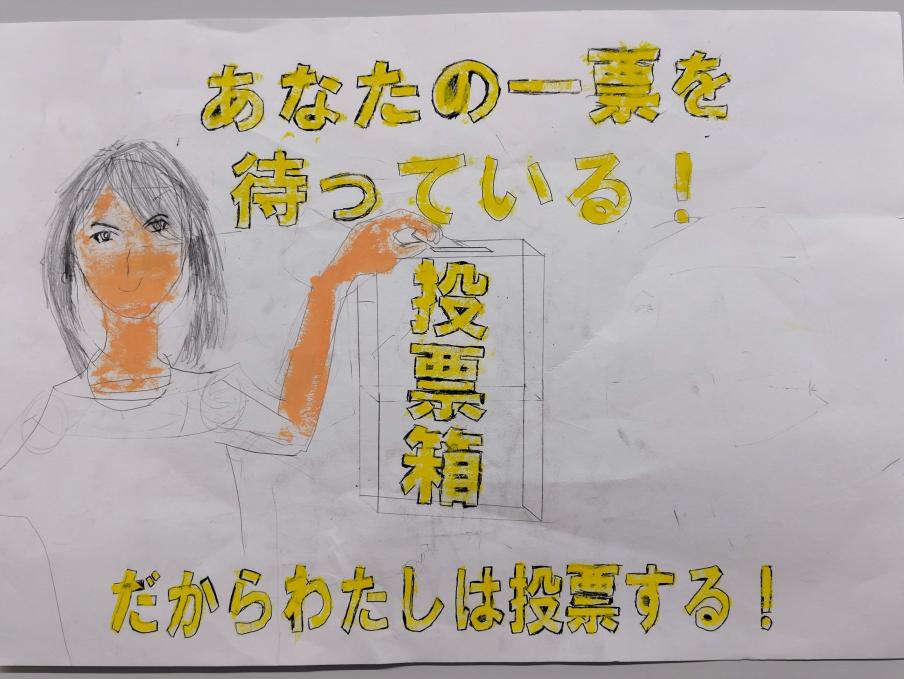 あなたの一票を
待っている！
投票箱
だからわたしは投票する！